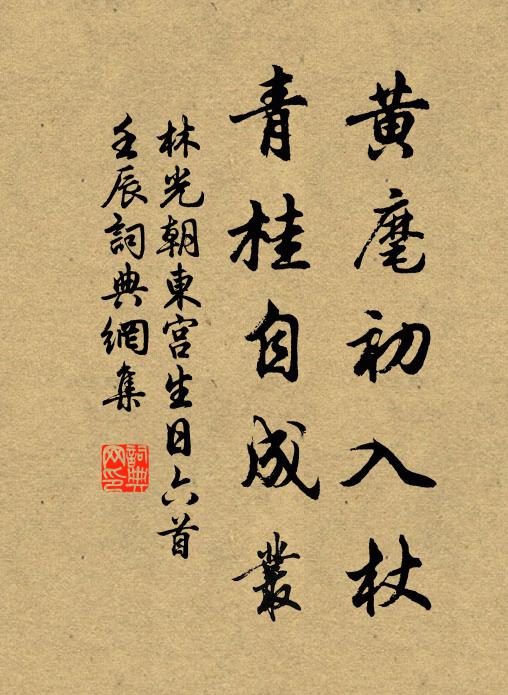 黄麾初入杖
青桂自成叢
林光朝東宮生日六首
壬辰詞典網集
詞典网印